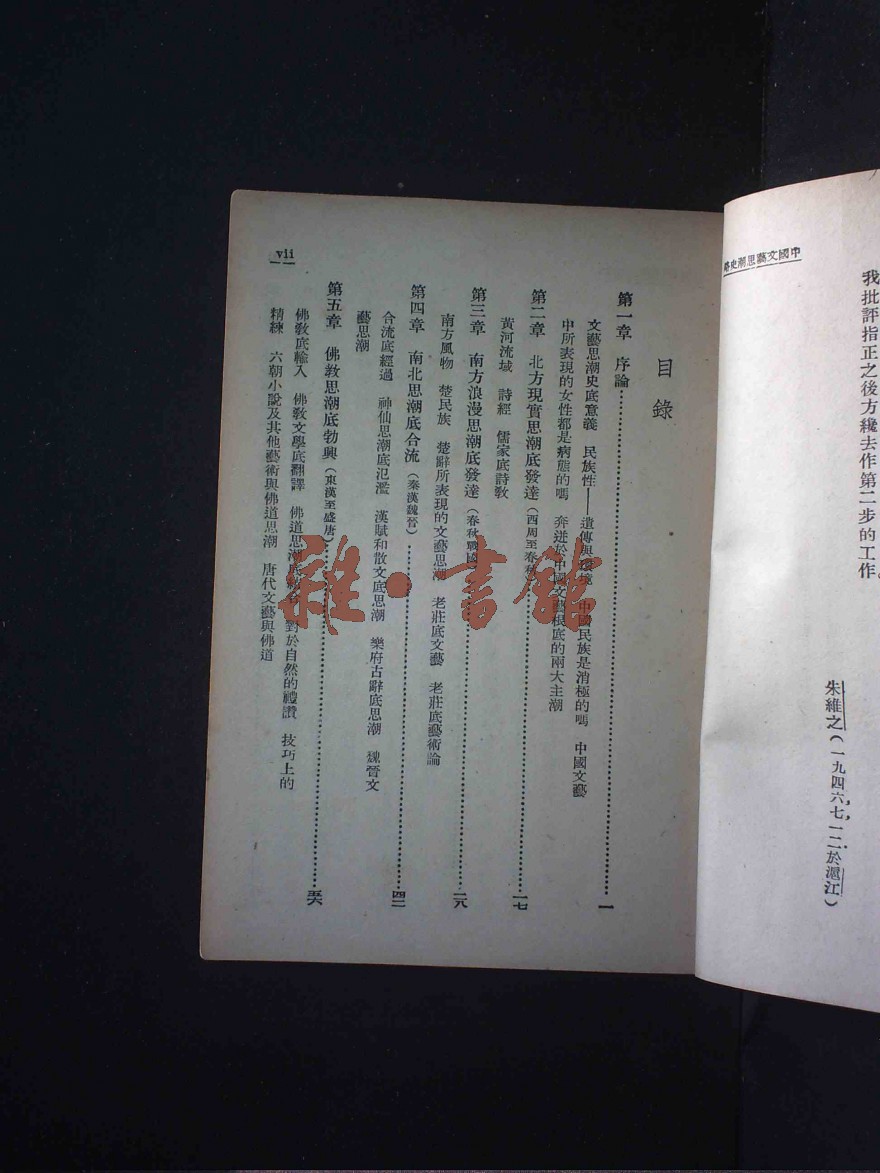 我批評指正之後方纔去作第二步的工作。
朱維之(一九四六,七,一二.於滬江)
中國文藝思潮史略
目錄
第一章 序論……一
文藝思潮史底意義 民族性——遺傳與環境 中國民族是消極的嗎 中國文藝
中所表現的女性都是病態的嗎 奔迸於中國文藝根底的兩大主潮
第二章 北方現實思潮底發達(西周至春秋)……一七
黃河流域 詩經 儒家底詩教
第三章 南方浪漫思潮底發達(春秋戰國)……二八
南方風物 楚民族 楚辭所表現的文藝思潮 老莊底文藝 老莊底藝術論
第四章 南北思潮底合流(秦漢魏晉)……四二
合流底經過 神仙思潮底氾濫 漢賦和散文底思潮 樂府古辭底思潮 魏晉文
藝思潮
第五章 佛教思潮底勃興(東漢至盛唐)……五六
佛教底輸入 佛教文學底翻譯 佛道思潮底結合 對於自然的禮讚 技巧上的
精練 六朝小說及其他藝術與佛道思潮 唐代文藝與佛道
vii
雜·書館